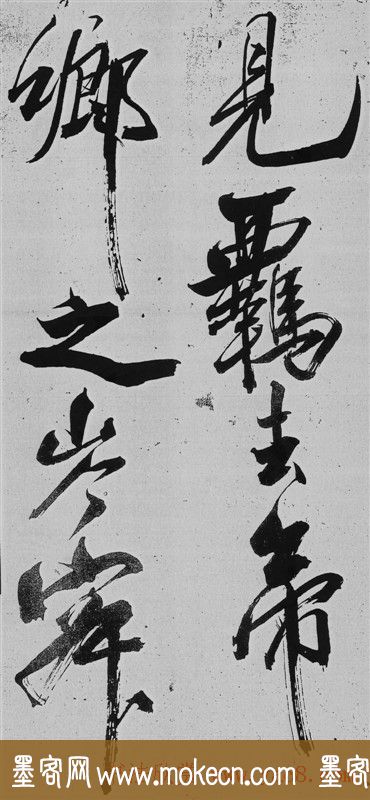 見覊去帝
鄉之岑寂
墨客网 www.mokecn.com 墨客